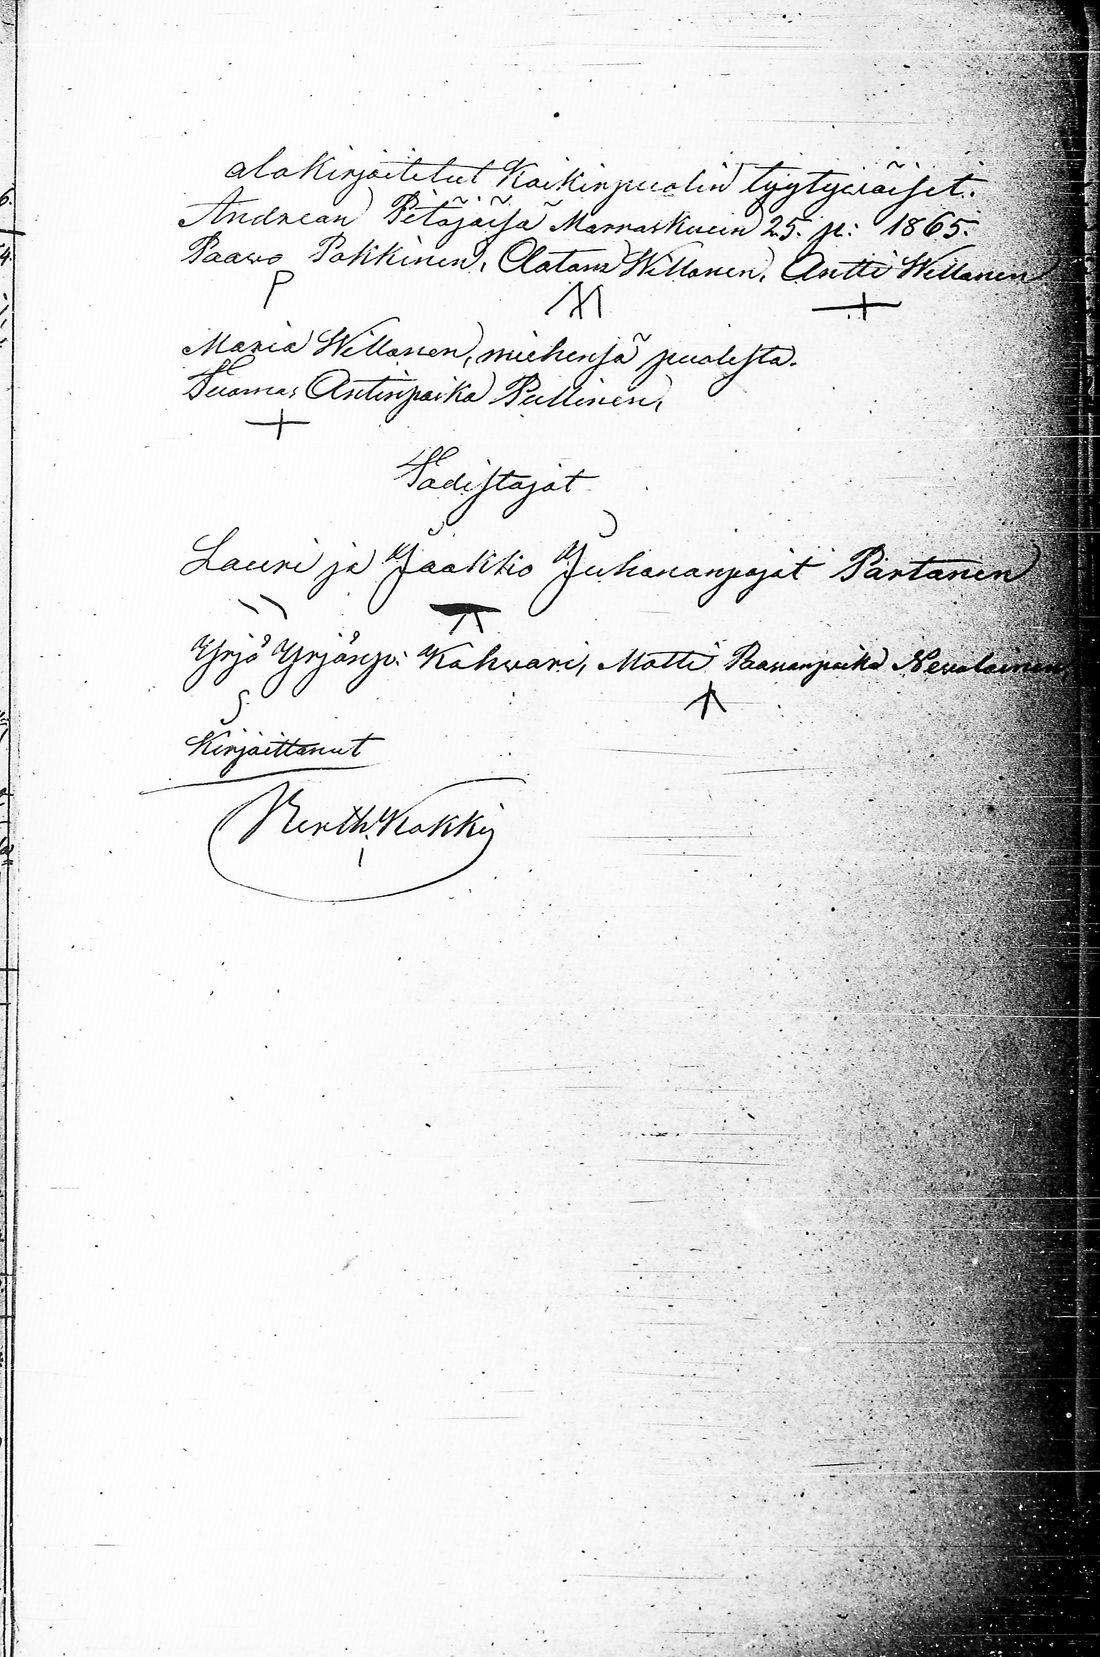 alakirjoitetut Kaikinpuolin tyytyväiset.
Andrean Petäjäisä Marraskuun 25. p: 1865.
Paawo Pakkinen, Aatami Willanen, Antti Willanen
Maria Willanen, miehensä puolesta.
Tuomas Antinpoika Pullinen,
Todistajat
Lauri ja Jaakko Juhananpojat Partanen
Yrjö Yrjönp: Kahwari, Matti Paavanpoika Nevalainen
Kirjoittanut
Kokki